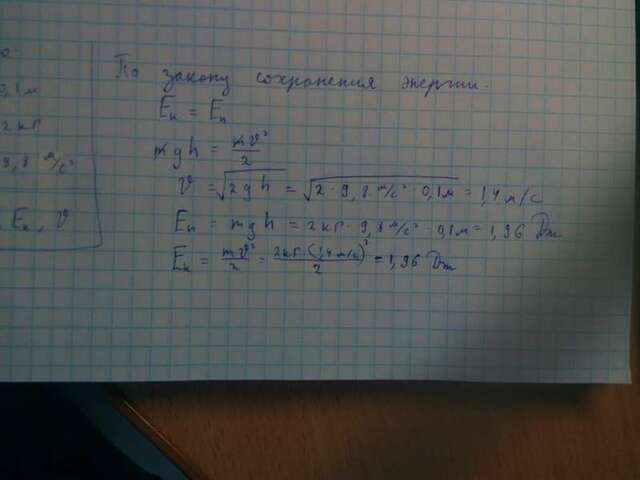 о.
0,1 м
2 кг
9,8 м/с²
Eк, v
По закону сохранения энергии.
Eк = Eп
mgh = mv²/2
v = √2gh = √2·9,8 м/с²·0,1м = 1,4 м/с
Eп = mgh = 2кг·9,8 м/с²·0,1м = 1,96 Дж
Eк = mv²/2 = 2кг·(1,4 м/с)²/2 = 1,96 Дж